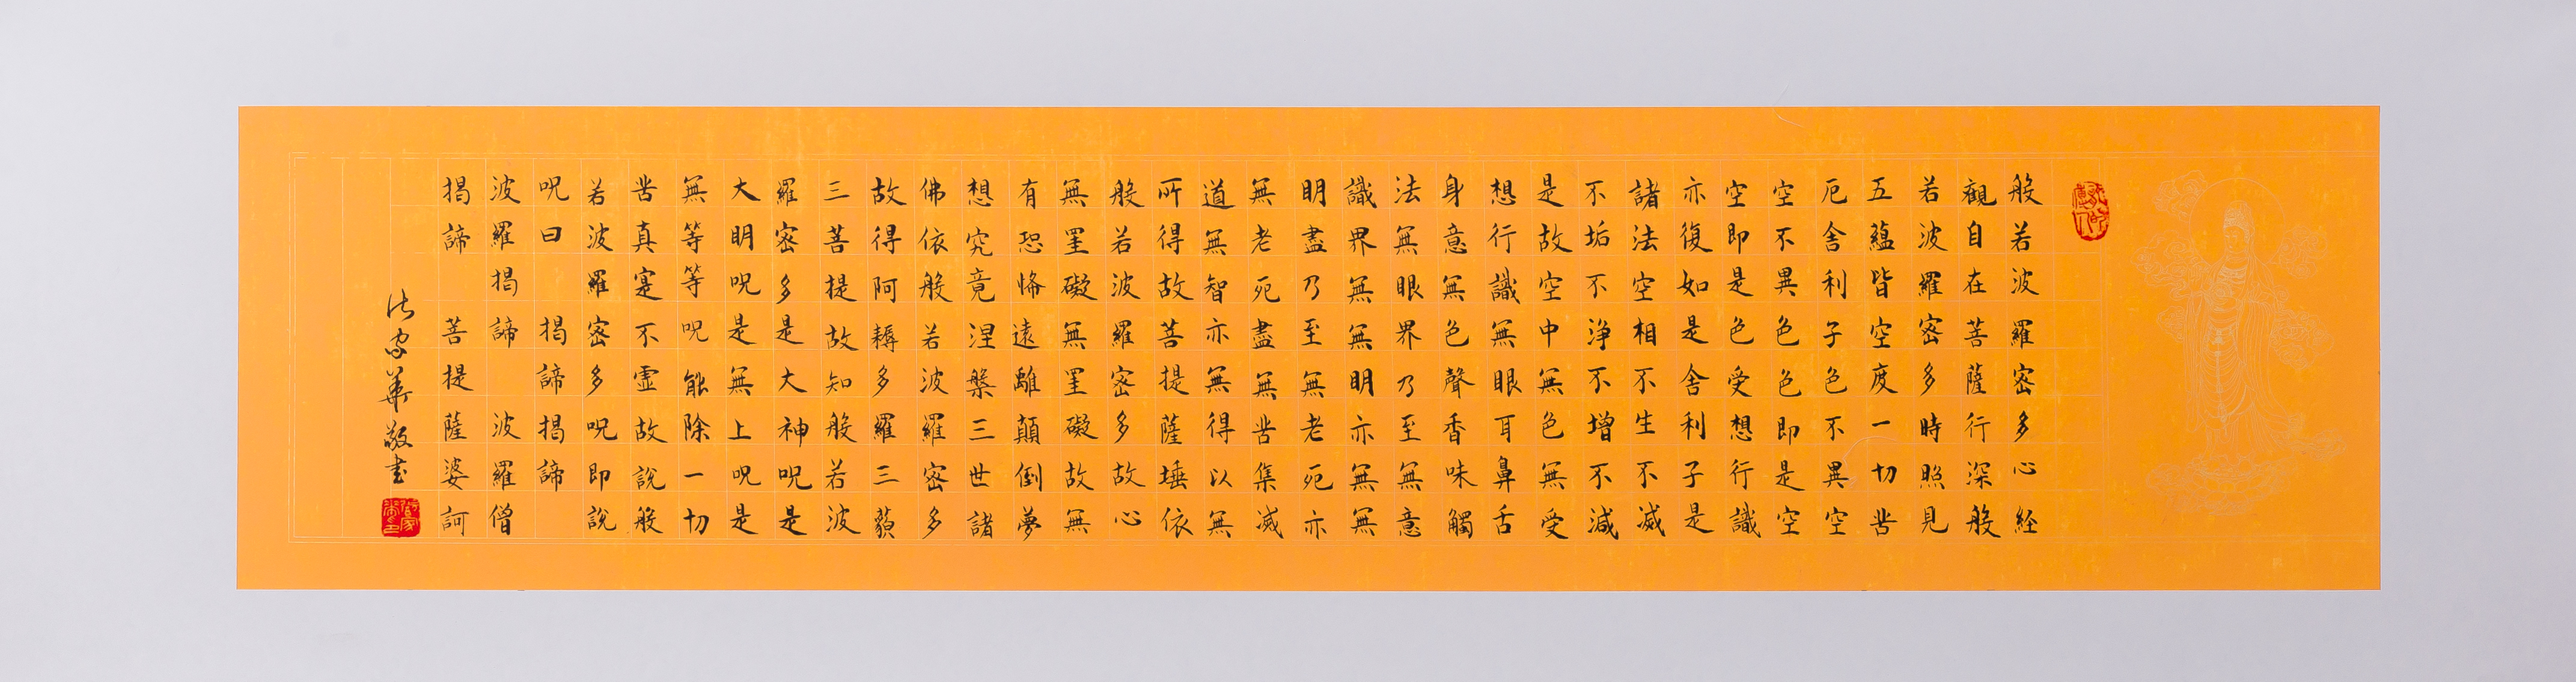 般若波羅密多心経
觀自在菩薩行深般
若波羅密多時照見
五蘊皆空度一切苦
厄舍利子色不異空
空不異色色即是空
空即是色受想行識
亦復如是舍利子是
諸法空相不生不滅
不垢不淨不增不減
是故空中無色無受
想行識無眼耳鼻舌
身意無色聲香味觸
法無眼界乃至無意
識界無無明亦無無
明盡乃至無老死亦
無老死盡無苦集滅
道無智亦無得以無
所得故菩提薩埵依
般若波羅密多故心
無罣礙無罣礙故無
有恐怖遠離顛倒夢
想究竟涅槃三世諸
佛依般若波羅密多
故得阿耨多羅三藐
三菩提故知般若波
羅密多是大神呪是
大明呪是無上呪是
無等等呪能除一切
苦真寔不虛故說般
若波羅密多呪即說
呪曰 揭諦揭諦
波羅揭諦 波羅僧
揭諦 菩提薩婆訶
華敬書